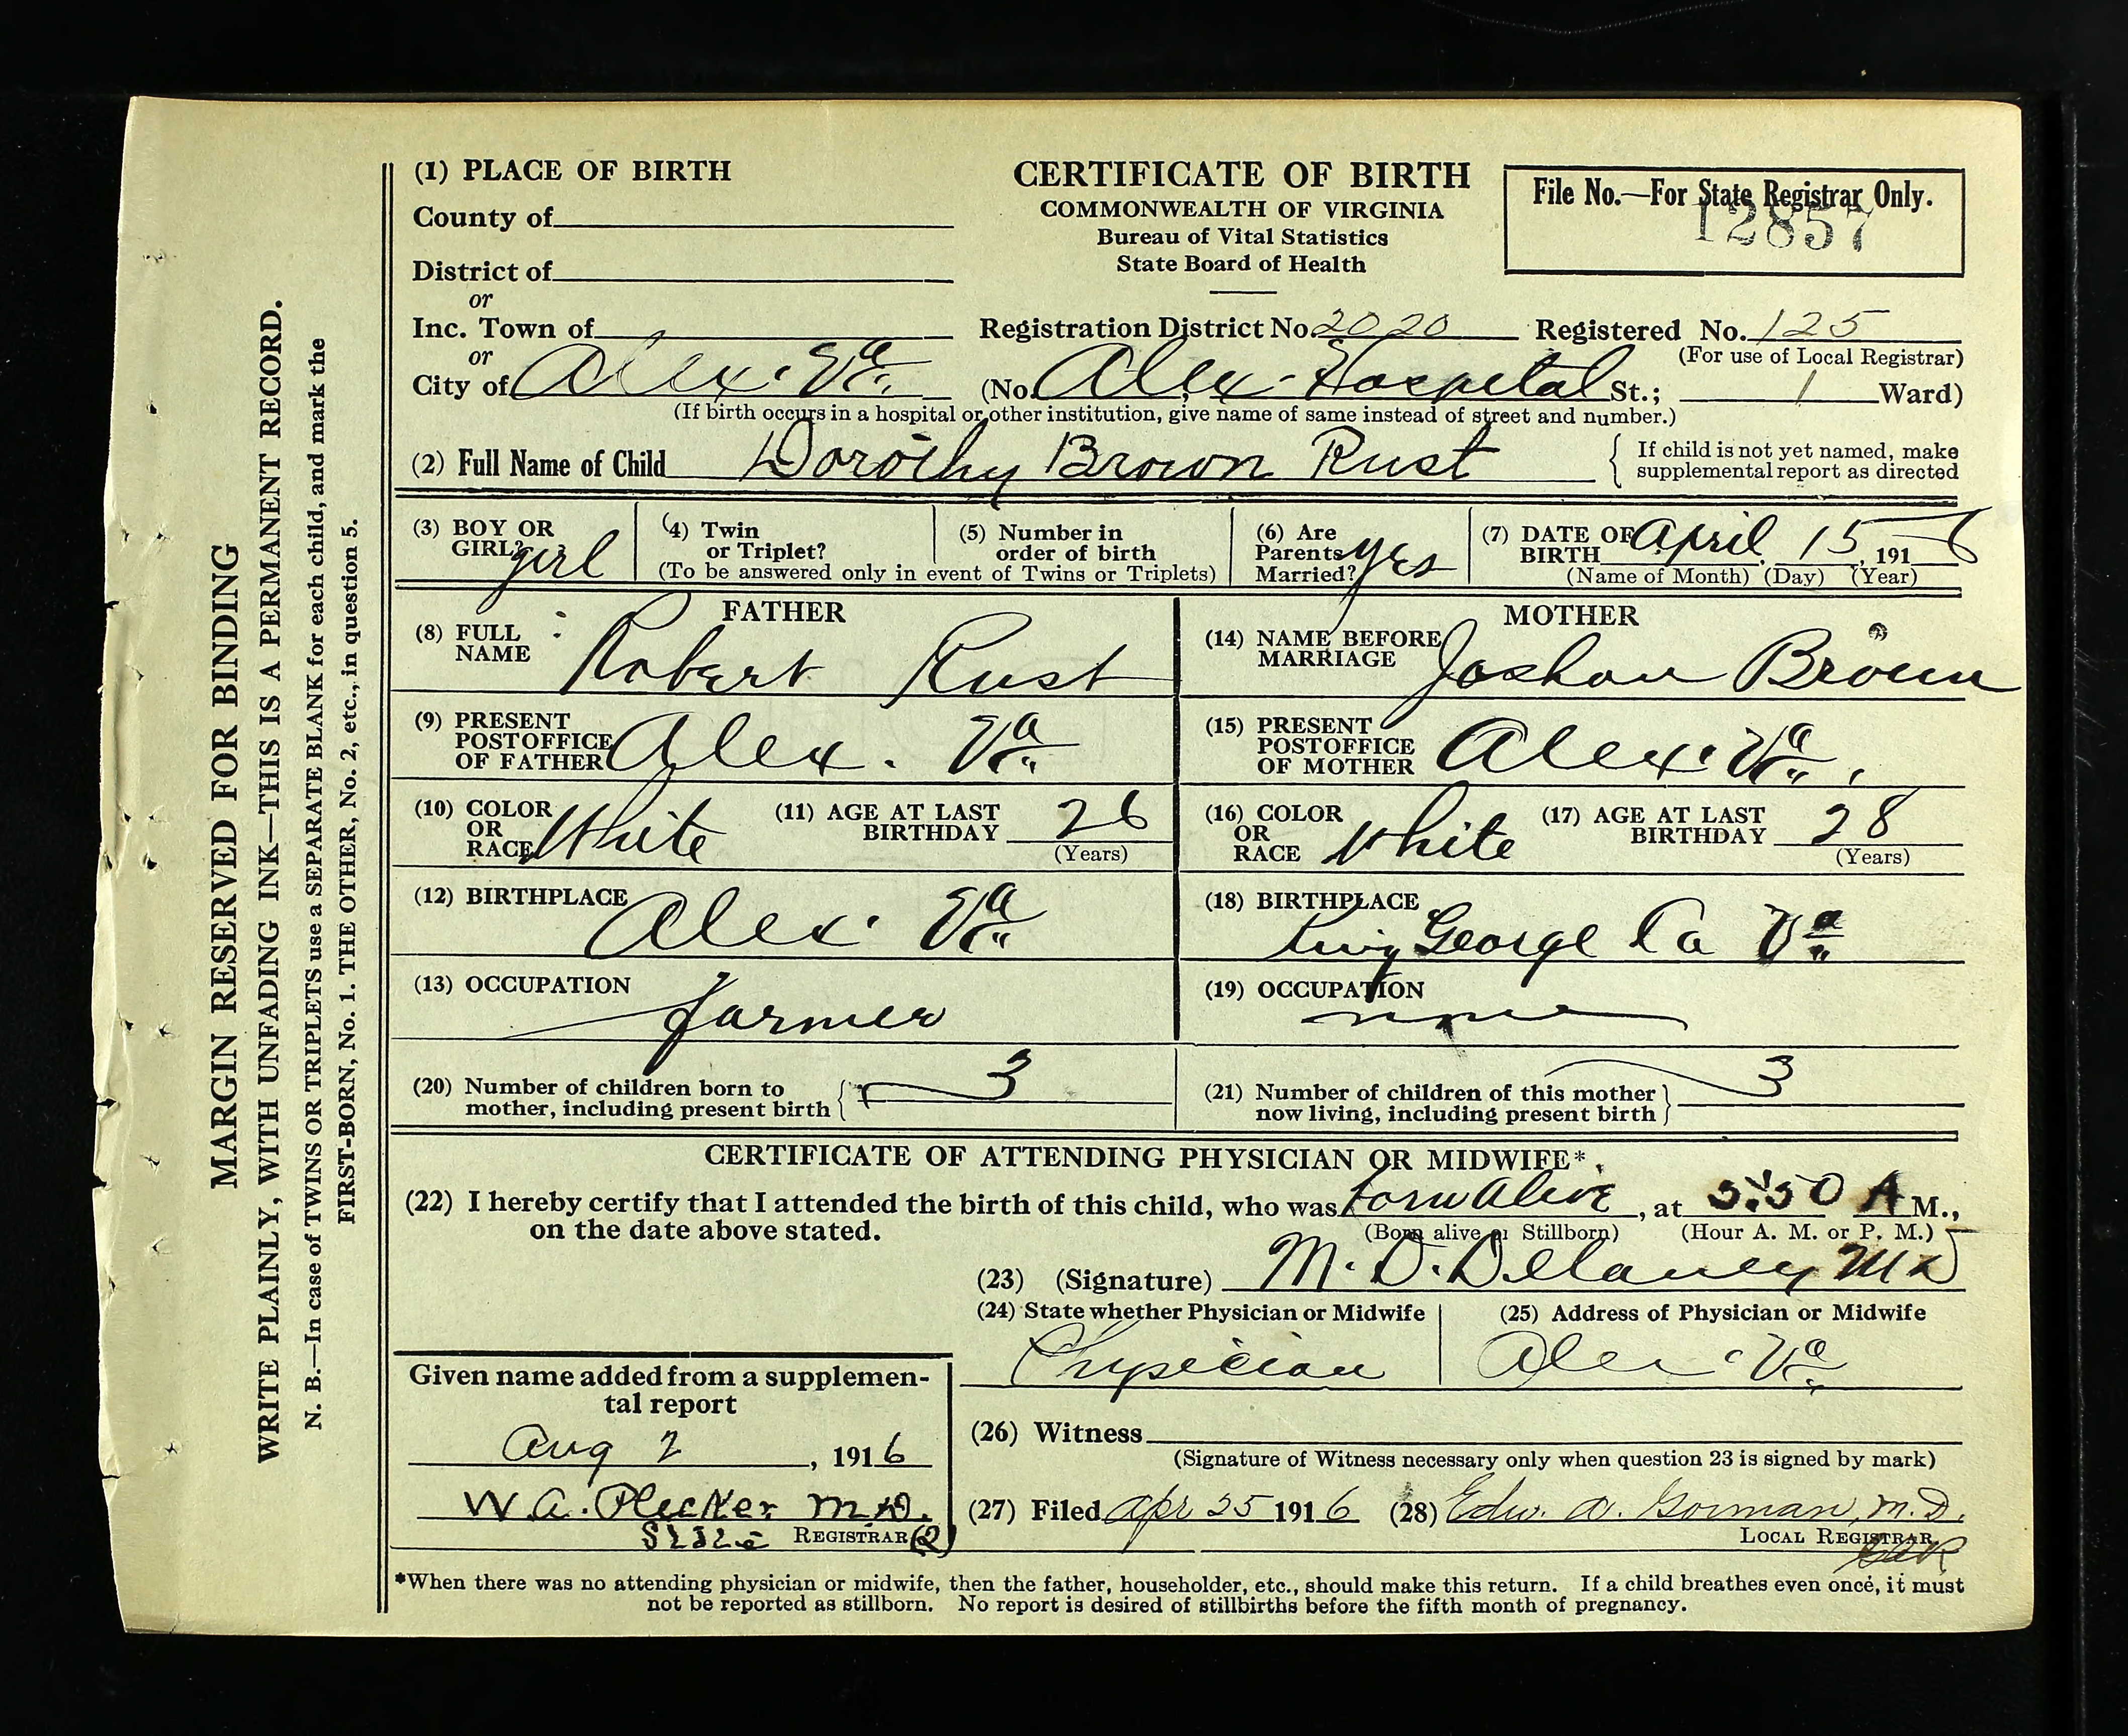 MARGIN RESERVED FOR BINDING
WRITE PLAINLY, WITH UNFADING INK—THIS IS A PERMANENT RECORD.
N. B.—In case of TWINS OR TRIPLETS use a SEPARATE BLANK for each child, and mark the
FIRST-BORN, No. 1. THE OTHER, No. 2, etc., in question 5.
(1) PLACE OF BIRTH
County of
District of
or
Inc. Town of
or
City of Alex. Va.
CERTIFICATE OF BIRTH
COMMONWEALTH OF VIRGINIA
Bureau of Vital Statistics
State Board of Health
File No.—For State Registrar Only.
12857
Registration District No. 2020 Registered No. 125
(For use of Local Registrar)
(No. Alex. Hospital St.; 1 Ward)
(If birth occurs in a hospital or other institution, give name of same instead of street and number.)
(2) Full Name of Child Dorothy Brown Rust
If child is not yet named, make
supplemental report as directed
(3) BOY OR
GIRL? girl
(4) Twin
or Triplet?
(5) Number in
order of birth
(To be answered only in event of Twins or Triplets)
(6) Are
Parents
Married? yes
(7) DATE OF
BIRTH April 15, 1916
(Name of Month) (Day) (Year)
FATHER
(8) FULL
NAME Robert Rust
(9) PRESENT
POSTOFFICE
OF FATHER Alex. Va.
(10) COLOR
OR
RACE White
(11) AGE AT LAST
BIRTHDAY 26
(Years)
(12) BIRTHPLACE
Alex. Va.
(13) OCCUPATION
farmer
MOTHER
(14) NAME BEFORE
MARRIAGE Brown
(15) PRESENT
POSTOFFICE
OF MOTHER Alex. Va.
(16) COLOR
OR
RACE White
(17) AGE AT LAST
BIRTHDAY 28
(Years)
(18) BIRTHPLACE
King George Co Va
(19) OCCUPATION
none
(20) Number of children born to
mother, including present birth 3
(21) Number of children of this mother
now living, including present birth 3
CERTIFICATE OF ATTENDING PHYSICIAN OR MIDWIFE*
(22) I hereby certify that I attended the birth of this child, who was born alive, at :50 A M.,
on the date above stated. (Born alive or Stillborn) (Hour A. M. or P. M.)
(23) (Signature) M. D. Delaney MD
(24) State whether Physician or Midwife
Physician
(25) Address of Physician or Midwife
Alex. Va.
Given name added from a supplemen-
tal report
Aug 2, 1916
W. A. Plecker M.D.
State REGISTRAR
(26) Witness
(Signature of Witness necessary only when question 23 is signed by mark)
(27) Filed Apr 25 1916 (28) Edw. A. Gorman, M.D.
LOCAL REGISTRAR
*When there was no attending physician or midwife, then the father, householder, etc., should make this return. If a child breathes even once, it must
not be reported as stillborn. No report is desired of stillbirths before the fifth month of pregnancy.